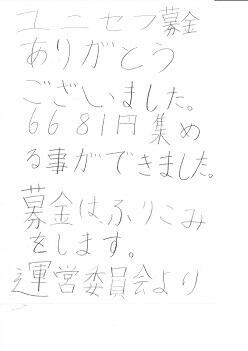 ユニセフ募金
ありがとう
ございました。
6681円集め
る事ができました。
募金はふりこみ
をします。
運営委員会より